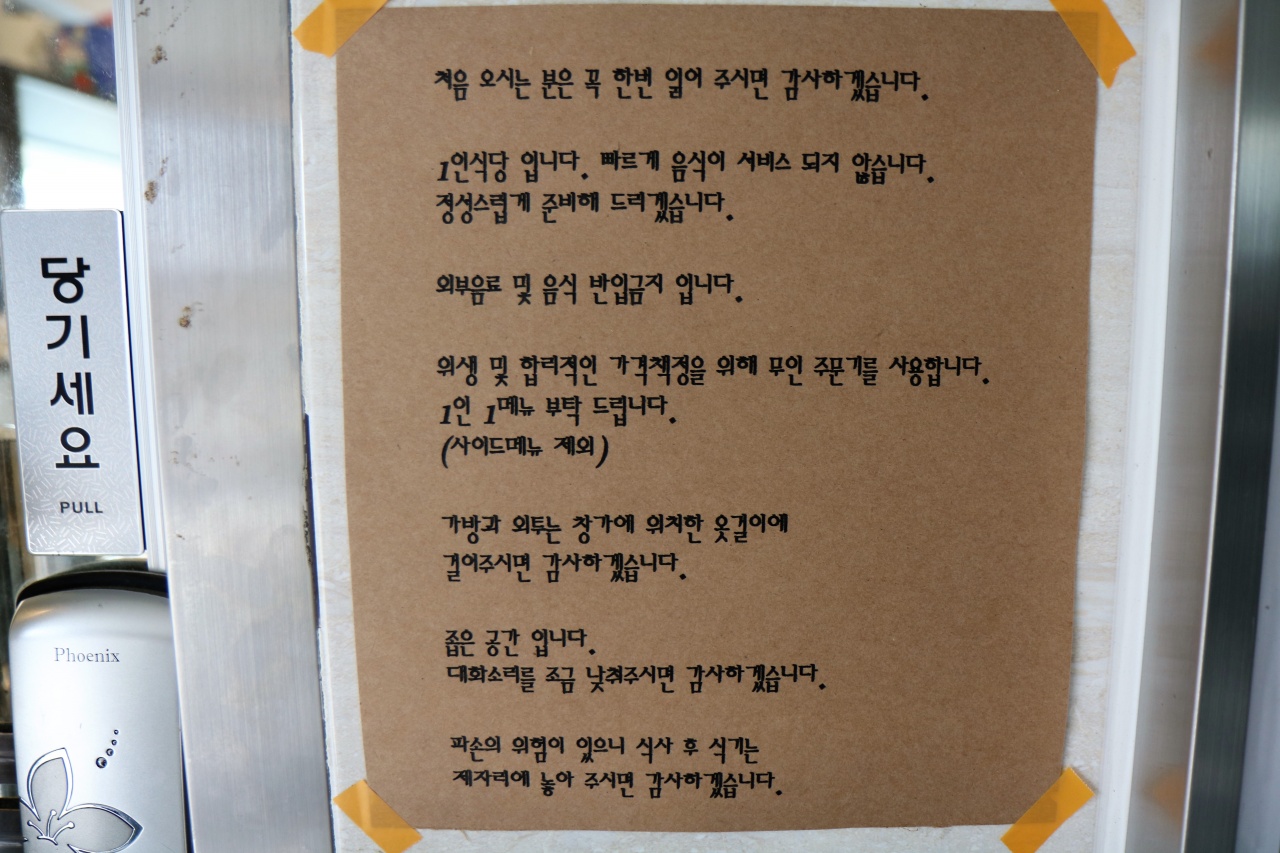 처음 오시는 분은 꼭 한번 읽어 주시면 감사하겠습니다.
1인식당 입니다. 빠르게 음식이 서비스 되지 않습니다.
정성스럽게 준비해 드리겠습니다.
외부음료 및 음식 반입금지 입니다.
위생 및 합리적인 가격책정을 위해 무인 주문기를 사용합니다.
1인 1메뉴 부탁 드립니다.
(사이드메뉴 제외)
가방과 외투는 창가에 위치한 옷걸이에
걸어주시면 감사하겠습니다.
좁은 공간 입니다.
대화소리를 조금 낮춰주시면 감사하겠습니다.
파손의 위험이 있으니 식사 후 식기는
제자리에 놓아 주시면 감사하겠습니다.
당기세요
PULL
Phoenix